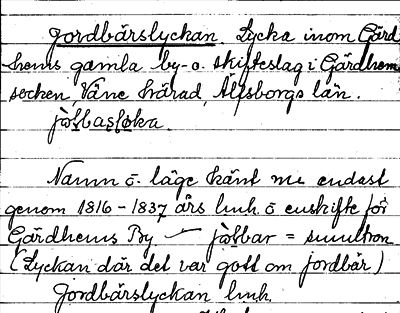 Jordbärslyckan. Lycka inom Gärd
hems gamla by- o. skifteslag i Gärdhem
socken, Väne härad, Älfsborgs län.

Namn o. läge känt nu endast
genom 1816-1837 års lmh. o enskifte för
Gärdhems By — = smultron
(Lyckan där det var gott om jordbär)
Jordbärslyckan lmh.